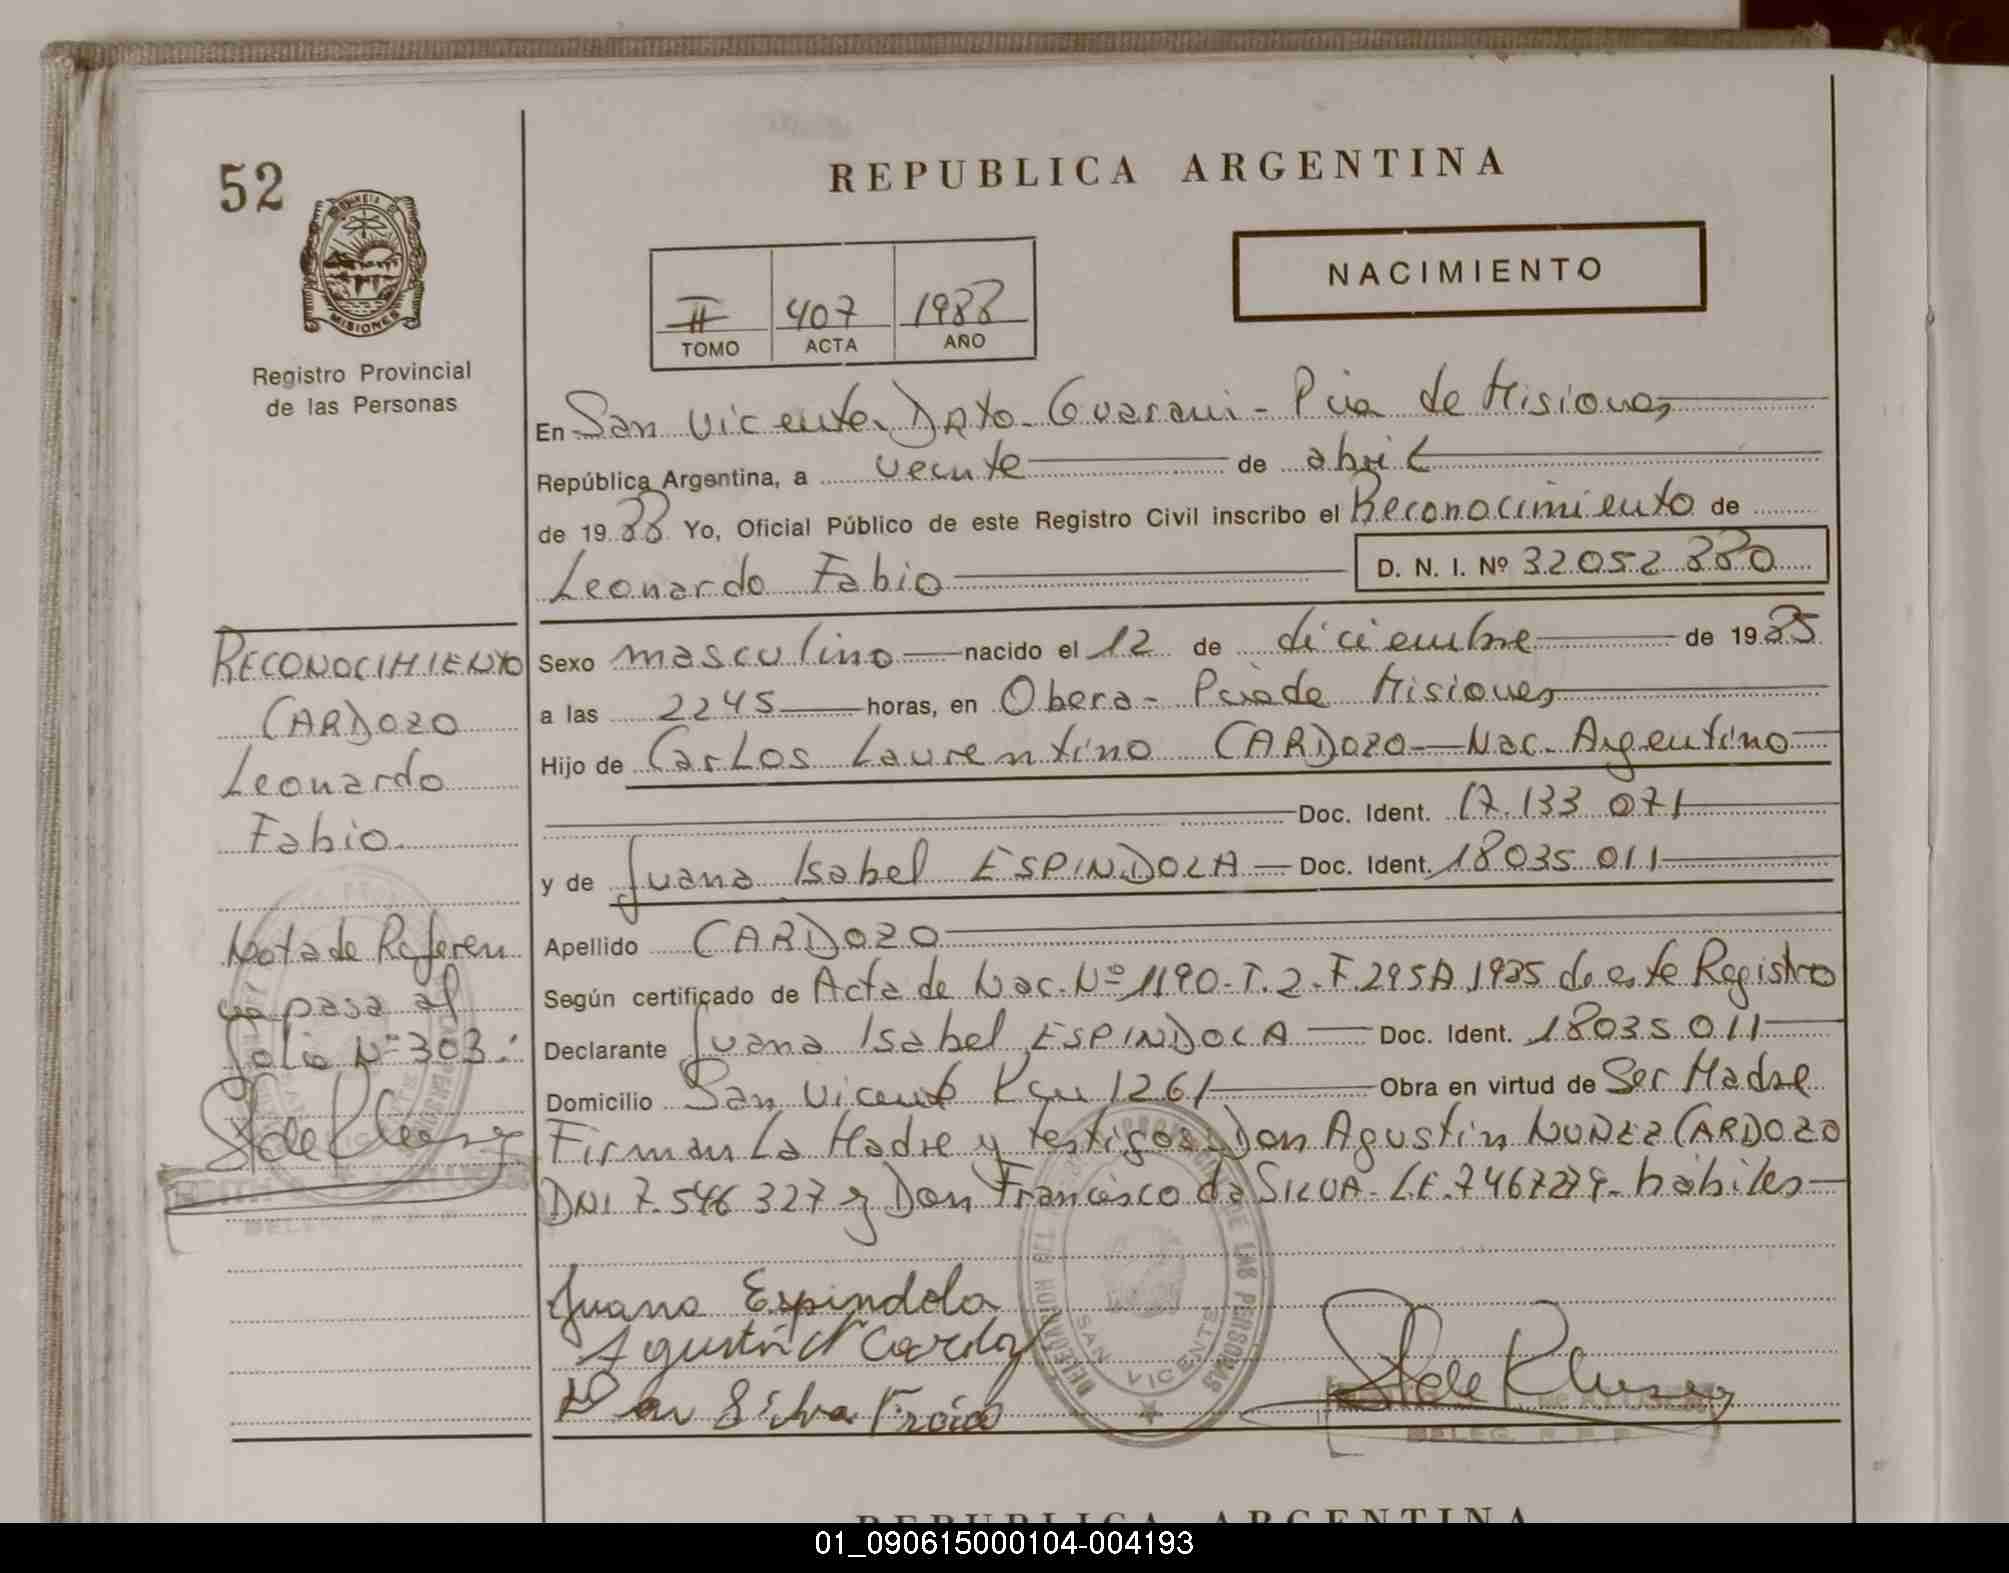 52
PROVINCIA DE
MISIONES
Registro Provincial
de las Personas
REPUBLICA ARGENTINA
NACIMIENTO
II 407 1988
TOMO ACTA AÑO
En San Vicente. Dpto. Guarani - Pcia de Misiones
República Argentina, a veinte de abril
de 1988 Yo, Oficial Público de este Registro Civil inscribo el Reconocimiento de
Leonardo Fabio D. N. I. Nº 32052880
Sexo masculino nacido el 12 de diciembre de 1985
a las 2245 horas, en Obera - Pciade Misiones
Hijo de Carlos Laurentino CARDOZO Nac. Argentino
Doc. Ident. 17.133 071
y de Juana Isabel ESPINDOLA Doc. Ident. 18035 011
Apellido CARDOZO
Según certificado de Acta de Nac. Nº 1190. T. 2. F. 295A 1985 de este Registro
Declarante Juana Isabel ESPINDOLA Doc. Ident. 18035 011
Domicilio San Vicente Km 1261 Obra en virtud de Ser Madre
Firman La Madre y testigos Don Agustín NUÑEZ CARDOZO
DNI 7.546 327 y Don Francisco da SILVA - L.E. 7467279 - hábiles
Juana Espindola
Agustín N Cardoz
Silva
DELEGACION DEL REGISTRO PROVINCIAL DE LAS PERSONAS
SAN VICENTE
RECONOCIMIENTO
CARDOZO
Leonardo
Fabio.
Nota de Referen
cia pasa al
folio Nº 303.
REPUBLICA ARGENTINA
01_090615000104-004193